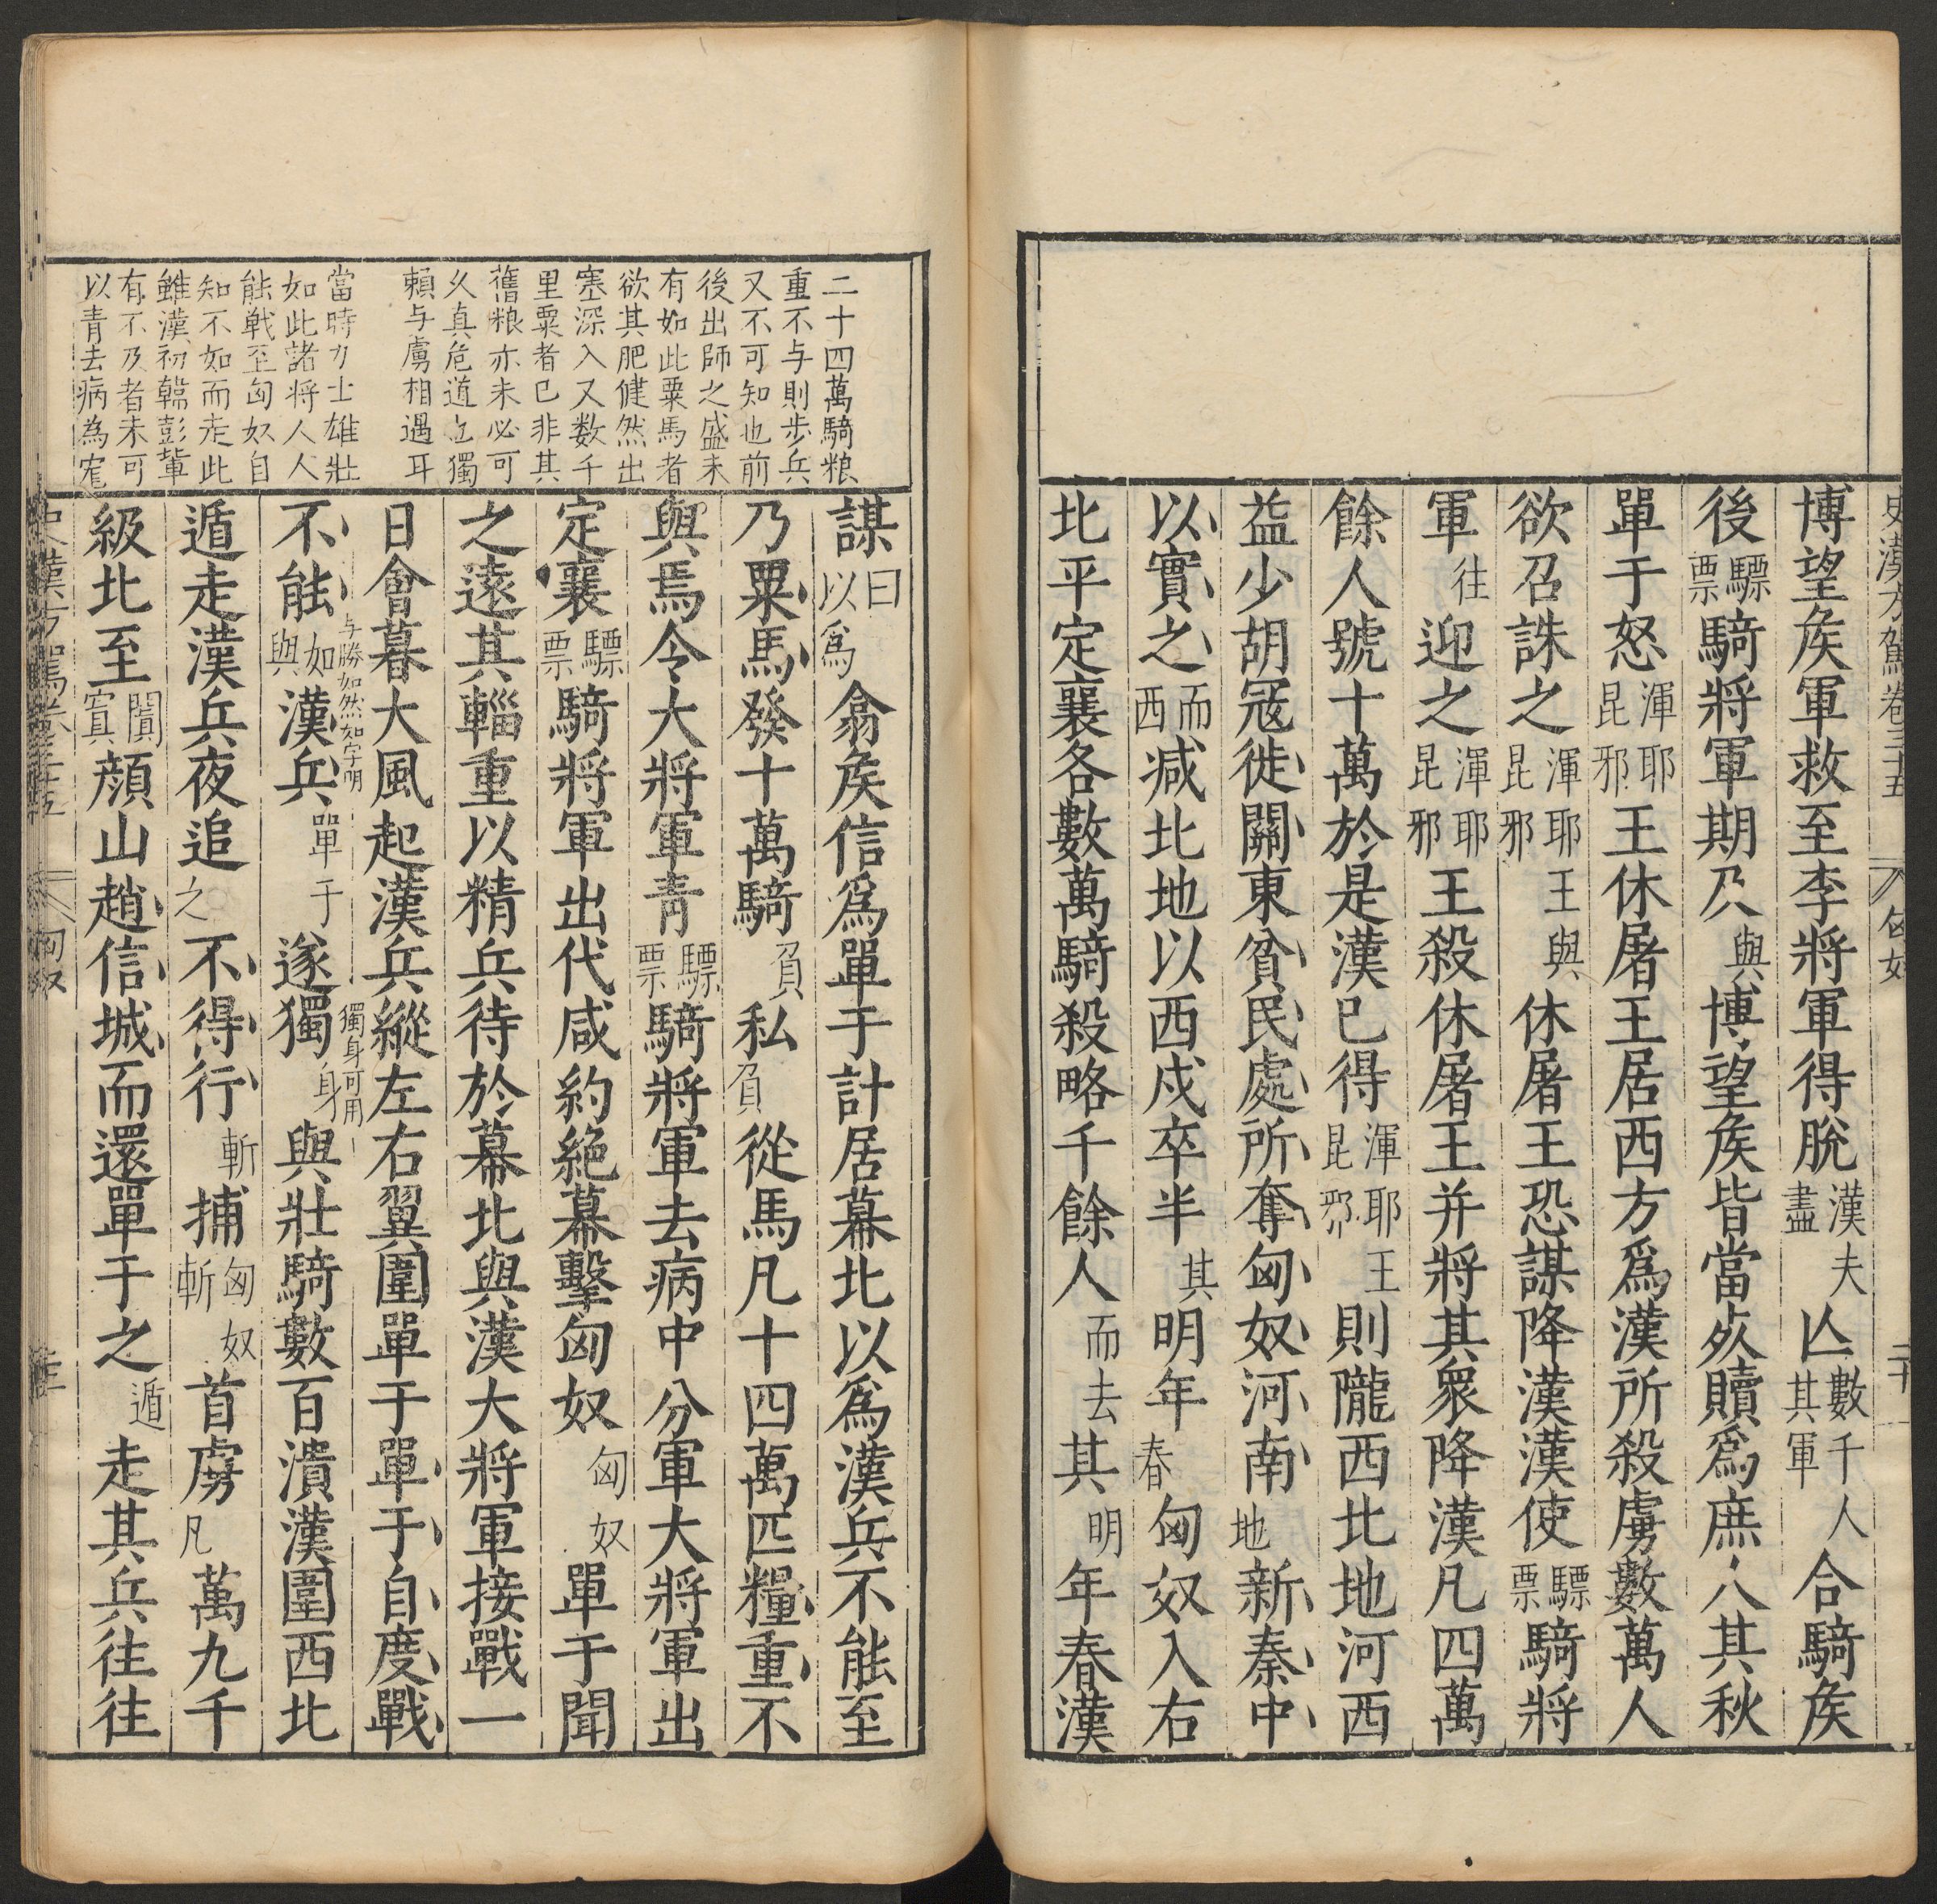 史漢方駕卷三十五
匈奴
二十
博望矦軍救至李將軍得脫漢盡夫亡數千人其軍合騎矦
後驃票騎將軍期及與博望矦皆當死贖爲庶人其秋
單于怒渾昆耶邪王休屠王居西方爲漢所殺虜數萬人
欲召誅之渾昆耶邪王與休屠王恐謀降漢漢使驃票騎將
軍往迎之渾昆耶邪王殺休屠王并將其眾降漢凡四萬
餘人號十萬於是漢已得渾昆耶邪王則隴西北地河西
益少胡冦徙關東貧民處所奪匈奴河南地新秦中
以實之而西減北地以西戍卒半其明年春匈奴入右
北平定襄各數萬騎殺略千餘人而去其明年春漢
二十四萬騎粮
重不与則步兵
又不可知也前
後出師之盛未
有如此粟馬者
欲其肥健然出
塞深入又数千
里粟者已非其
舊粮亦未必可
久真危道也獨
頼与虜相遇耳
當時力士雄壮
如此諸将人人
能戦至匈奴自
知不如而走此
雖漢初韓彭軰
有不及者未可
以青去病為㝔
謀曰以爲翕矦信爲單于計居幕北以爲漢兵不能至
乃粟馬發十萬騎負私負從馬凡十四萬匹糧重不
與焉令大將軍青驃票騎將軍去病中分軍大將軍出
定襄驃票騎將軍出代咸約絕幕擊匈奴匈奴單于聞
之遠其輜重以精兵待於幕北與漢大將軍接戰一
日會暮大風起漢兵縱左右翼圍單于單于自度戰
与勝如然如字明
獨身可用
不能如與漢兵單于遂獨身與壯騎數百潰漢圍西北
遁走漢兵夜追之不得行斬捕匈斬奴首虜凡萬九千
級北至闐寘顏山趙信城而還單于之遁走其兵往往
史漢方駕卷三十五
匈奴